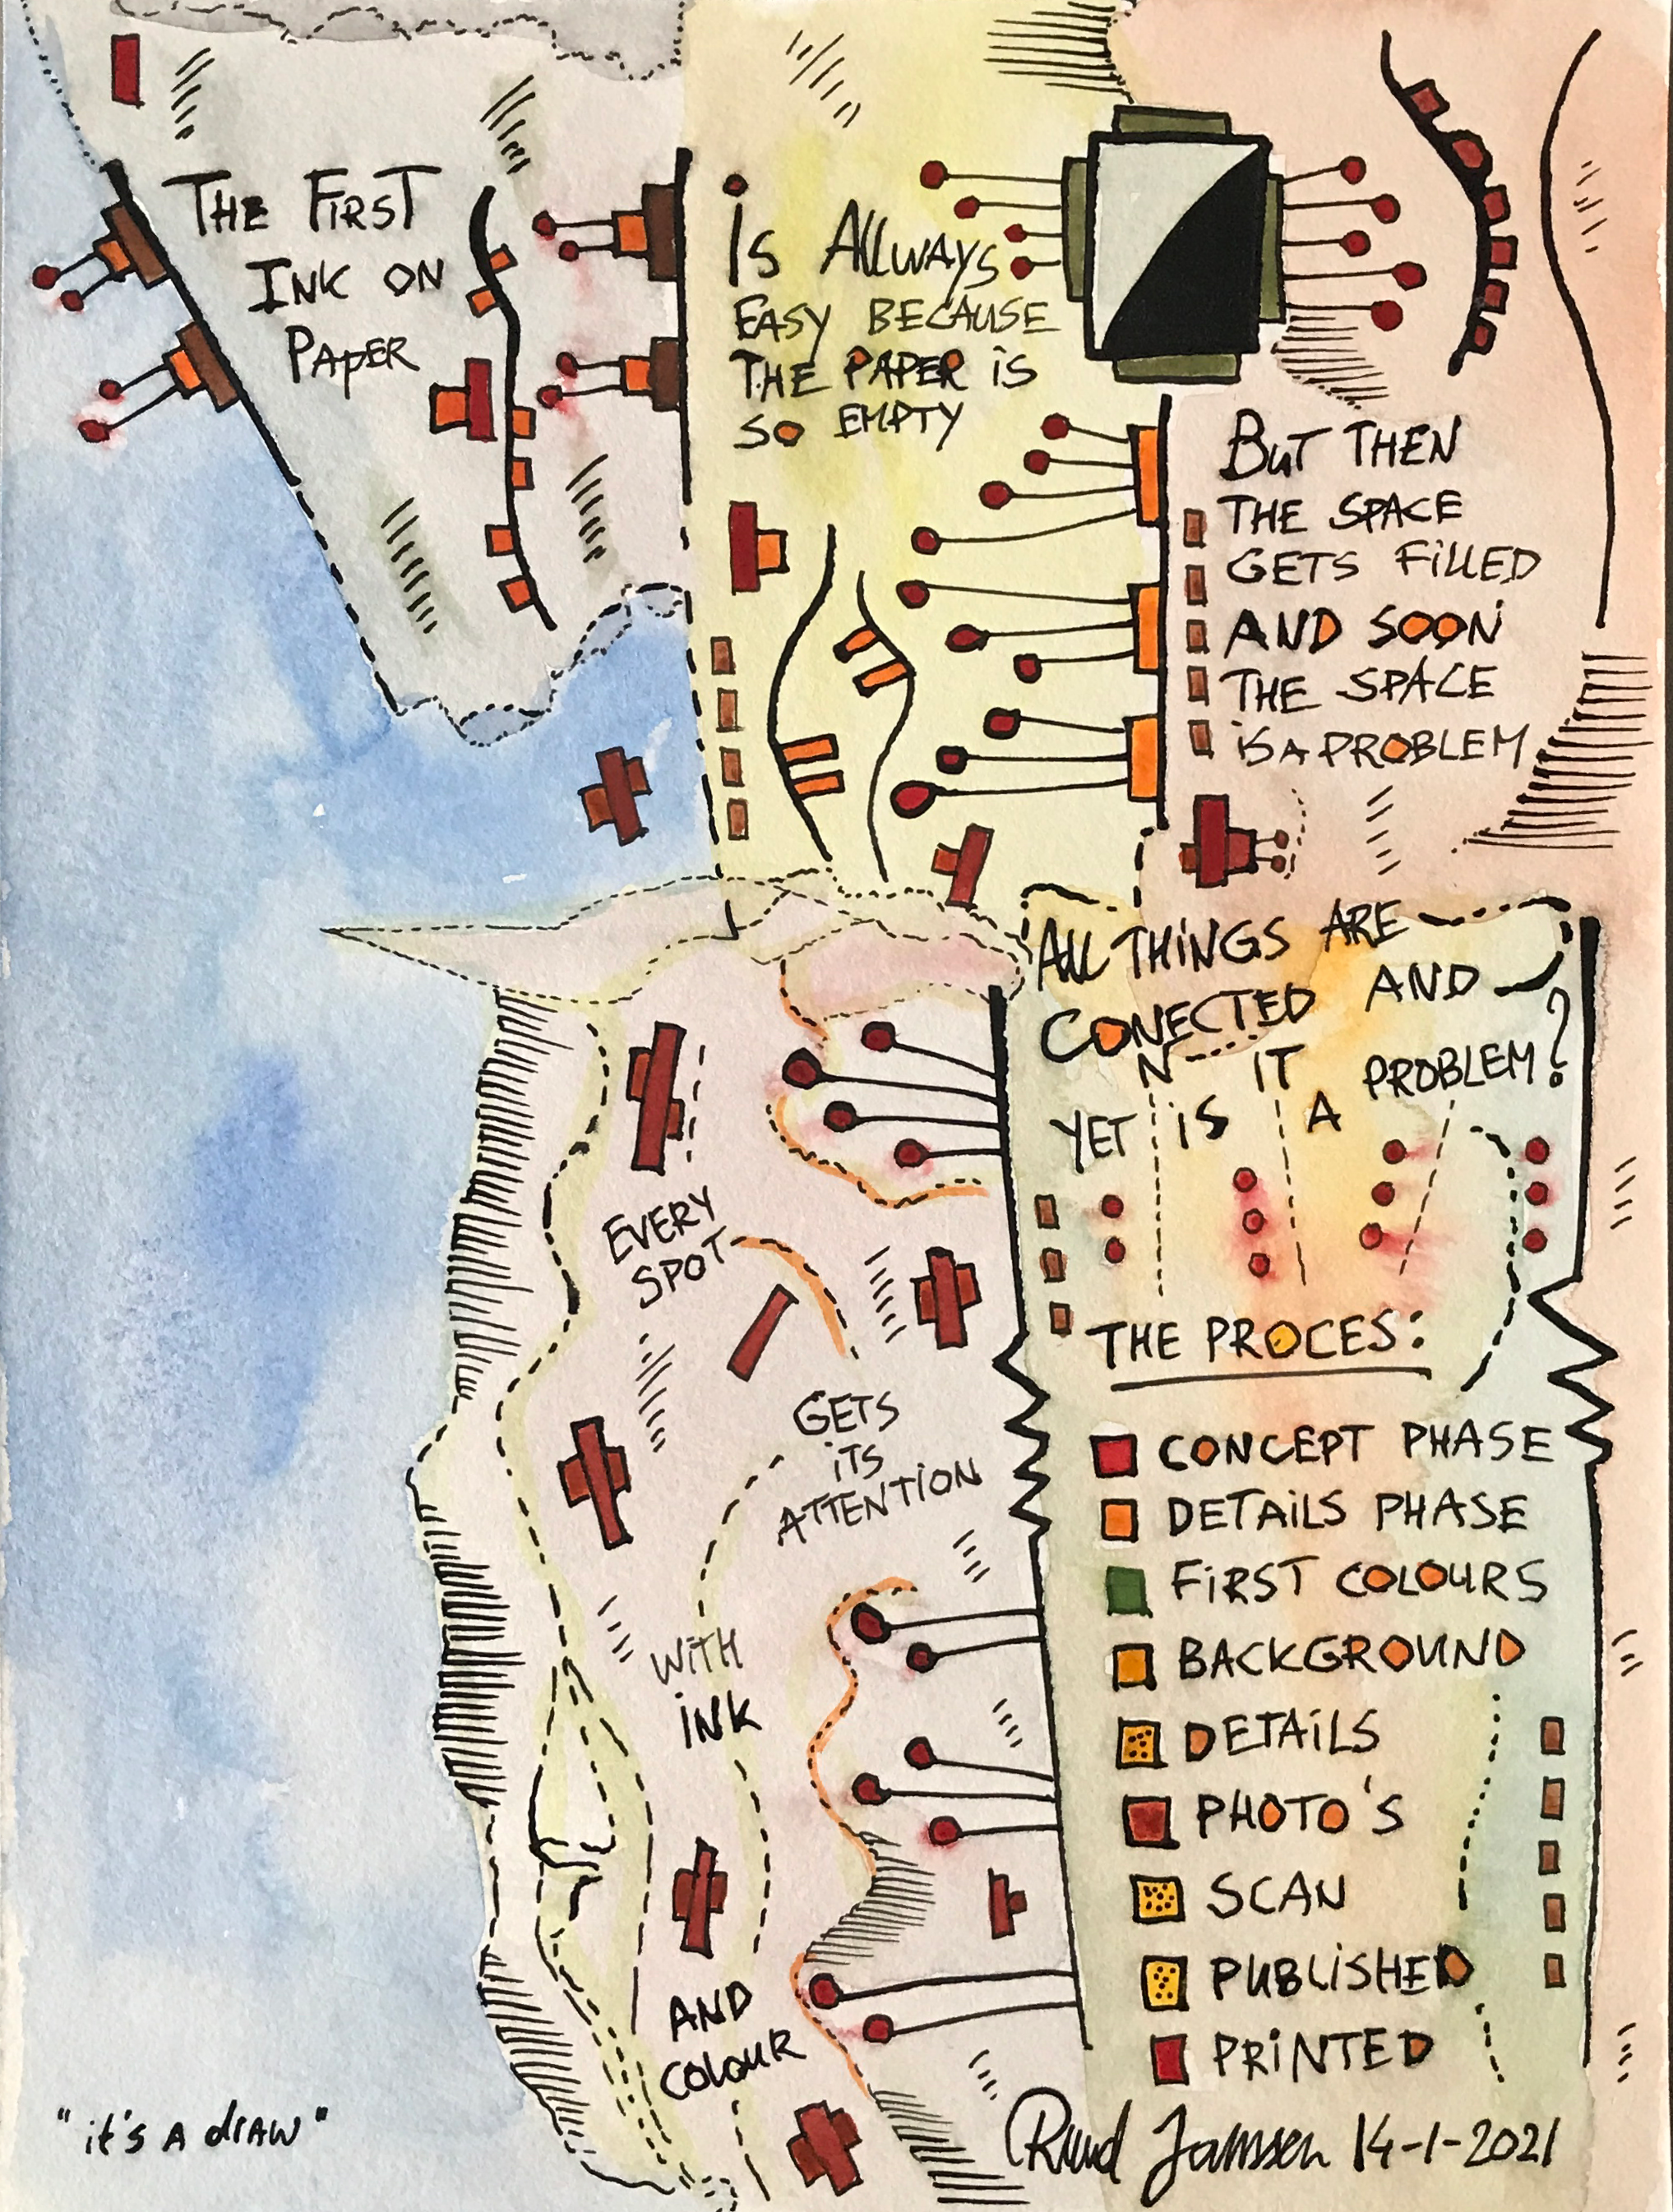 THE FIRST
INK ON
PAPER
is Allways
EASY BECAUSE
THE PAPER iS
SO EMPTY
BuT THEN
THE SPACE
GETS FiLLED
AND SOON
THE SPACE
iS A PROBLEM
ALL THiNGS ARE
CONECTED AND
N IT PROBLEM?
YET iS A
EVERY
SPOT
GETS
iTS
ATTENTiON
WiTH
iNK
AND
COLOUR
THE PROCES:
CONCEPT PHASE
DETAiLS PHASE
FiRST COLOURS
BACKGROUND
DETAiLS
PHOTO'S
SCAN
PUBLiSHED
PRiNTED
"it's A drAW"
Ruud Janssen 14-1-2021